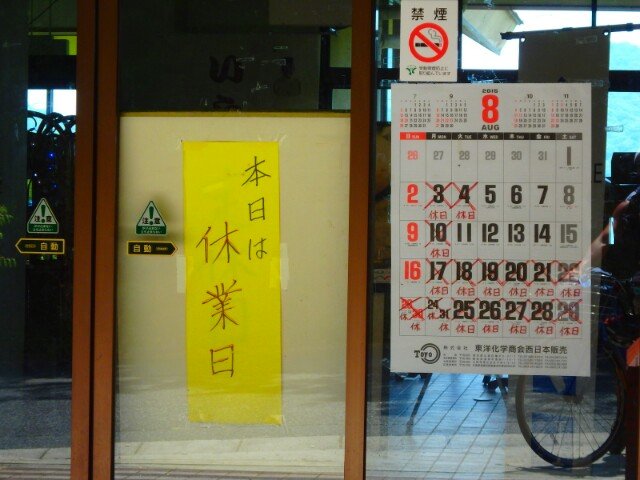 禁煙
本日は
休業日
注意
自動
注意
自動
2015
7
9
8
10
11
AUG
日 SUN
月 MON
火 TUE
水 WED
木 THU
金 FRI
土 SAT
26 27 28 29 30 31 1
2 3 4 5 6 7 8
休日 休日
9 10 11 12 13 14 15
休日
16 17 18 19 20 21 22
休日 休日 休日 休日 休日 休日
23/30 24/31 25 26 27 28 29
休日 休日 休日 休日 休日 休日
TOYO
株式会社 東洋化学商会西日本販売